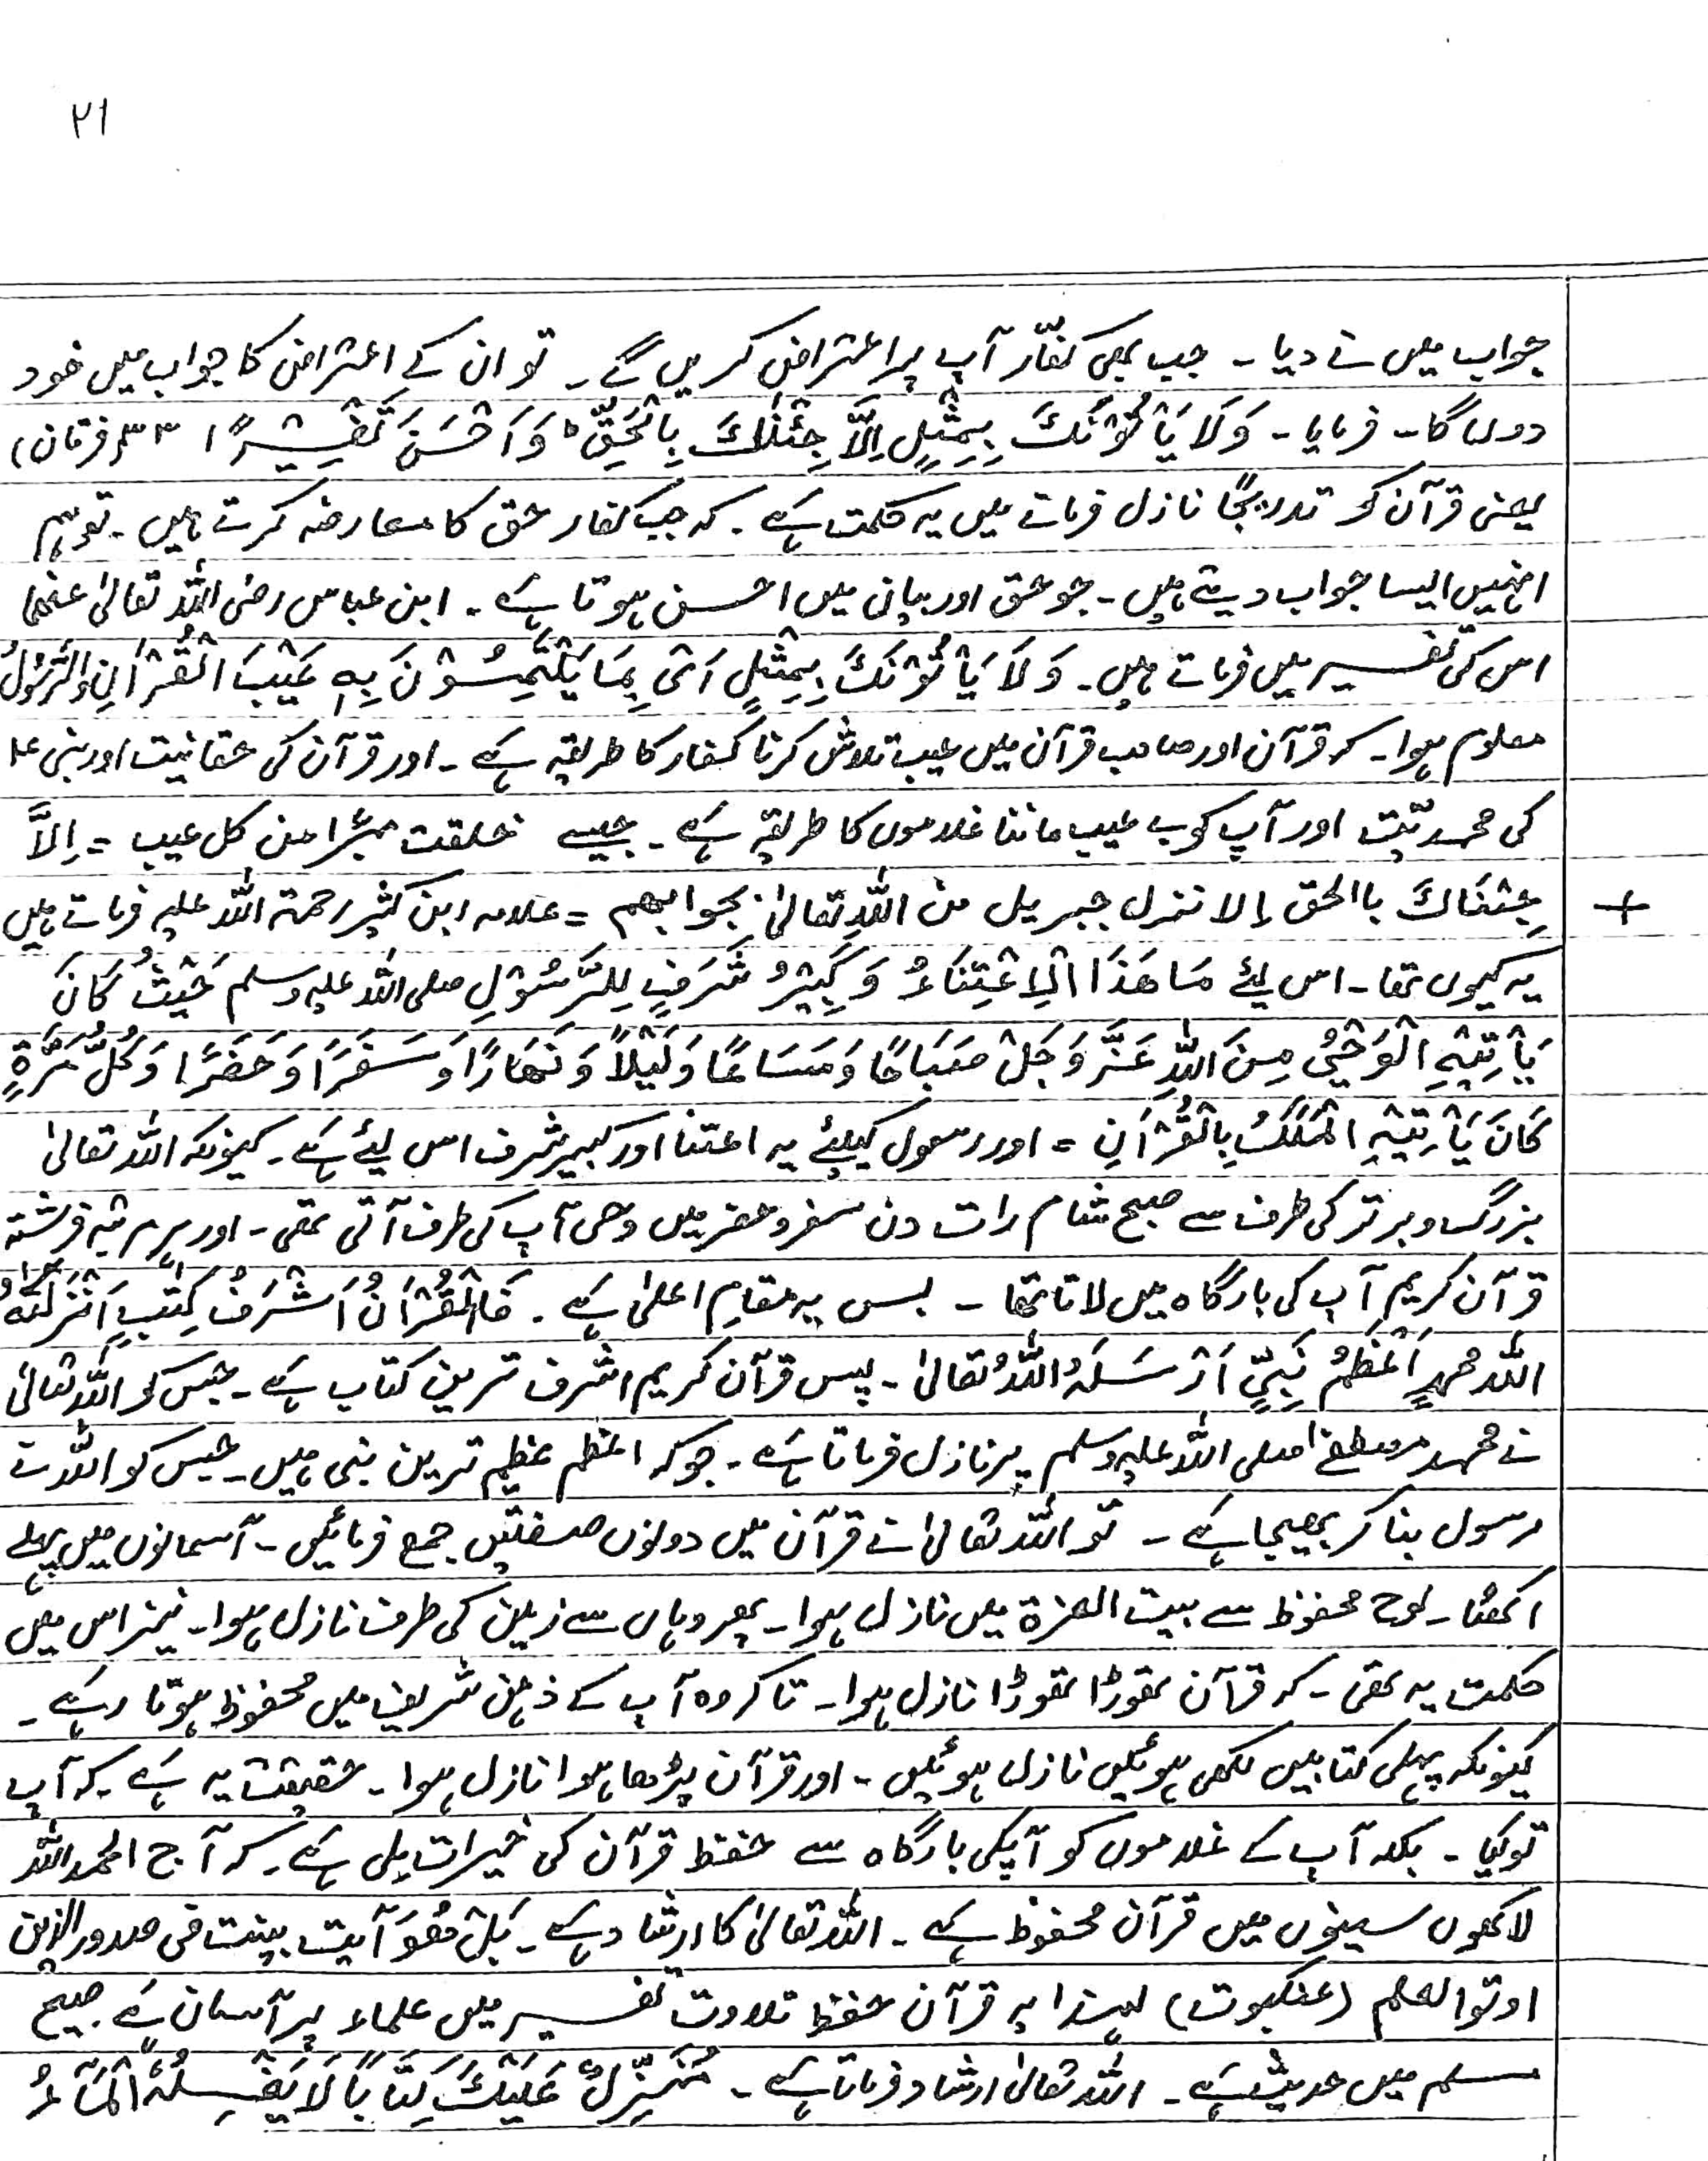 ۲۱
جواب میں نے دیا ۔ جب بھی کفّار آپ پر اعتراض کریں گے ۔ تو ان کے اعتراض کا جواب میں خود
دوں گا ۔ فرمایا ۔ وَلَا یَأْتُوْنَكَ بِمِثْلٍ اِلَّا جِئْنٰكَ بِالْحَقِّ وَ اَحْسَنَ تَفْسِیْرًا (۳۳ فرقان)
یعنی قرآن کو تدریجًا نازل فرمانے میں یہ حکمت ہے ۔ کہ جب کفار حق کا معارضہ کرتے ہیں ۔ تو ہم
انہیں ایسا جواب دیتے ہیں ۔ جو حق اور بیان میں احسن ہوتا ہے ۔ ابن عباس رضی اللہ تعالیٰ عنھما
اس کی تفسیر میں فرماتے ہیں ۔ وَلَا یَأْتُوْنَكَ بِمِثْلٍ اَیْ بِمَا یَلْتَمِسُوْنَ بِهٖ عَیْبَ الْقُرْاٰنِ وَالرَّسُوْلُ
معلوم ہوا ۔ کہ قرآن اور صاحب قرآن میں عیب تلاش کرنا کفار کا طریقہ ہے ۔ اور قرآن کی حقانیت اور نبی ؑ
کی محمدیّت اور آپ کو بے عیب ماننا غلاموں کا طریقہ ہے ۔ جیسے خلقت مبرّا من کل عیب = اِلَّا
جِئْنَاكَ باالحق إلا نزل جبریل من اللّٰهِ تعالیٰ بجوابھم = علامہ ابن کثیر رحمۃ اللہ علیہ فرماتے ہیں
+
یہ کیوں تھا ۔ اس لیئے مَا ھَذَا الْاِعْتِنَاءُ وَ کَبِیْرُ شَرَفٍ لِلرَّسُوْلِ صلی اللہ علیہ وسلم حَیْثُ کَانَ
یَأْتِیْهِ الْوَحْیُ مِنَ اللّٰهِ عَزَّ وَجَلْ صَبَاحًا وَمَسَاءًا وَلَیْلاً وَنَهَارًا وَسَفَرًا وَحَضَرًا وَکُلُّ مَرَّةٍ
کَانَ یَأْتِیْهِ الْمَلَكُ بِالْقُرْاٰنِ = اور رسول کیلئے یہ اعتنا اور کبیر شرف اس لیئے ہے ۔ کیونکہ اللہ تعالیٰ
بزرگ و برتر کی طرف سے صبح شام رات دن سفر و حضر میں وحی آپ کی طرف آتی تھی ۔ اور ہر مرتبہ فرشتہ
قرآن کریم آپ کی بارگاہ میں لاتا تھا ۔ بس یہ مقامِ اعلیٰ ہے ۔ فَالْقُرْاٰنُ اَشْرَفُ کِتٰبٍ اَنْزَلَهُ
اللّٰه محمدٍ اَعْظَمُ نَبِیٍّ اَرْسَلَهُ اللّٰهُ تعالیٰ ۔ پس قرآن کریم اشرف ترین کتاب ہے ۔ جس کو اللہ تعالیٰ
نے محمد مصطفےٰ صلی اللہ علیہ وسلم پر نازل فرماتا ہے ۔ جو کہ اعظم عظیم ترین نبی ہیں ۔ جس کو اللہ نے
رسول بنا کر بھیجا ہے ۔ تو اللہ تعالیٰ نے قرآن میں دونوں صفتیں جمع فرمائیں ۔ آسمانوں میں پہلے
اکھٹا ۔ لوح محفوظ سے بیت العزۃ میں نازل ہوا ۔ پھر وہاں سے زمین کی طرف نازل ہوا ۔ نیز اس میں
حکمت یہ تھی ۔ کہ قرآن تھوڑا تھوڑا نازل ہوا ۔ تاکہ وہ آپ کے ذہن شریف میں محفوظ ہوتا رہے ۔
کیونکہ پہلی کتابیں لکھی ہوئیں نازل ہوئیں ۔ اور قرآن پڑھا ہوا نازل ہوا ۔ حقیقت یہ ہے ۔ کہ آپ
تو کیا ۔ بلکہ آپ کے غلاموں کو آپکی بارگاہ سے حفظ قرآن کی خیرات ملی ہے ۔ کہ آج الحمد اللہ
لاکھوں سینوں میں قرآن محفوظ ہے ۔ اللہ تعالیٰ کا ارشاد ہے ۔ بَلْ ھُوَ آیت بینت فی صدور الذین
اوتوا لعلم (عنکبوت) لہذا یہ قرآن حفظ تلاوت تفسیر میں علماء پر آسان ہے صیح
مسلم میں حدیث ہے ۔ اللہ تعالیٰ ارشاد فرماتا ہے ۔ مُنَزِّلٌ عَلَیْكَ کِتَابًا لَا یَغْسِلُهُ الْمَآءُ